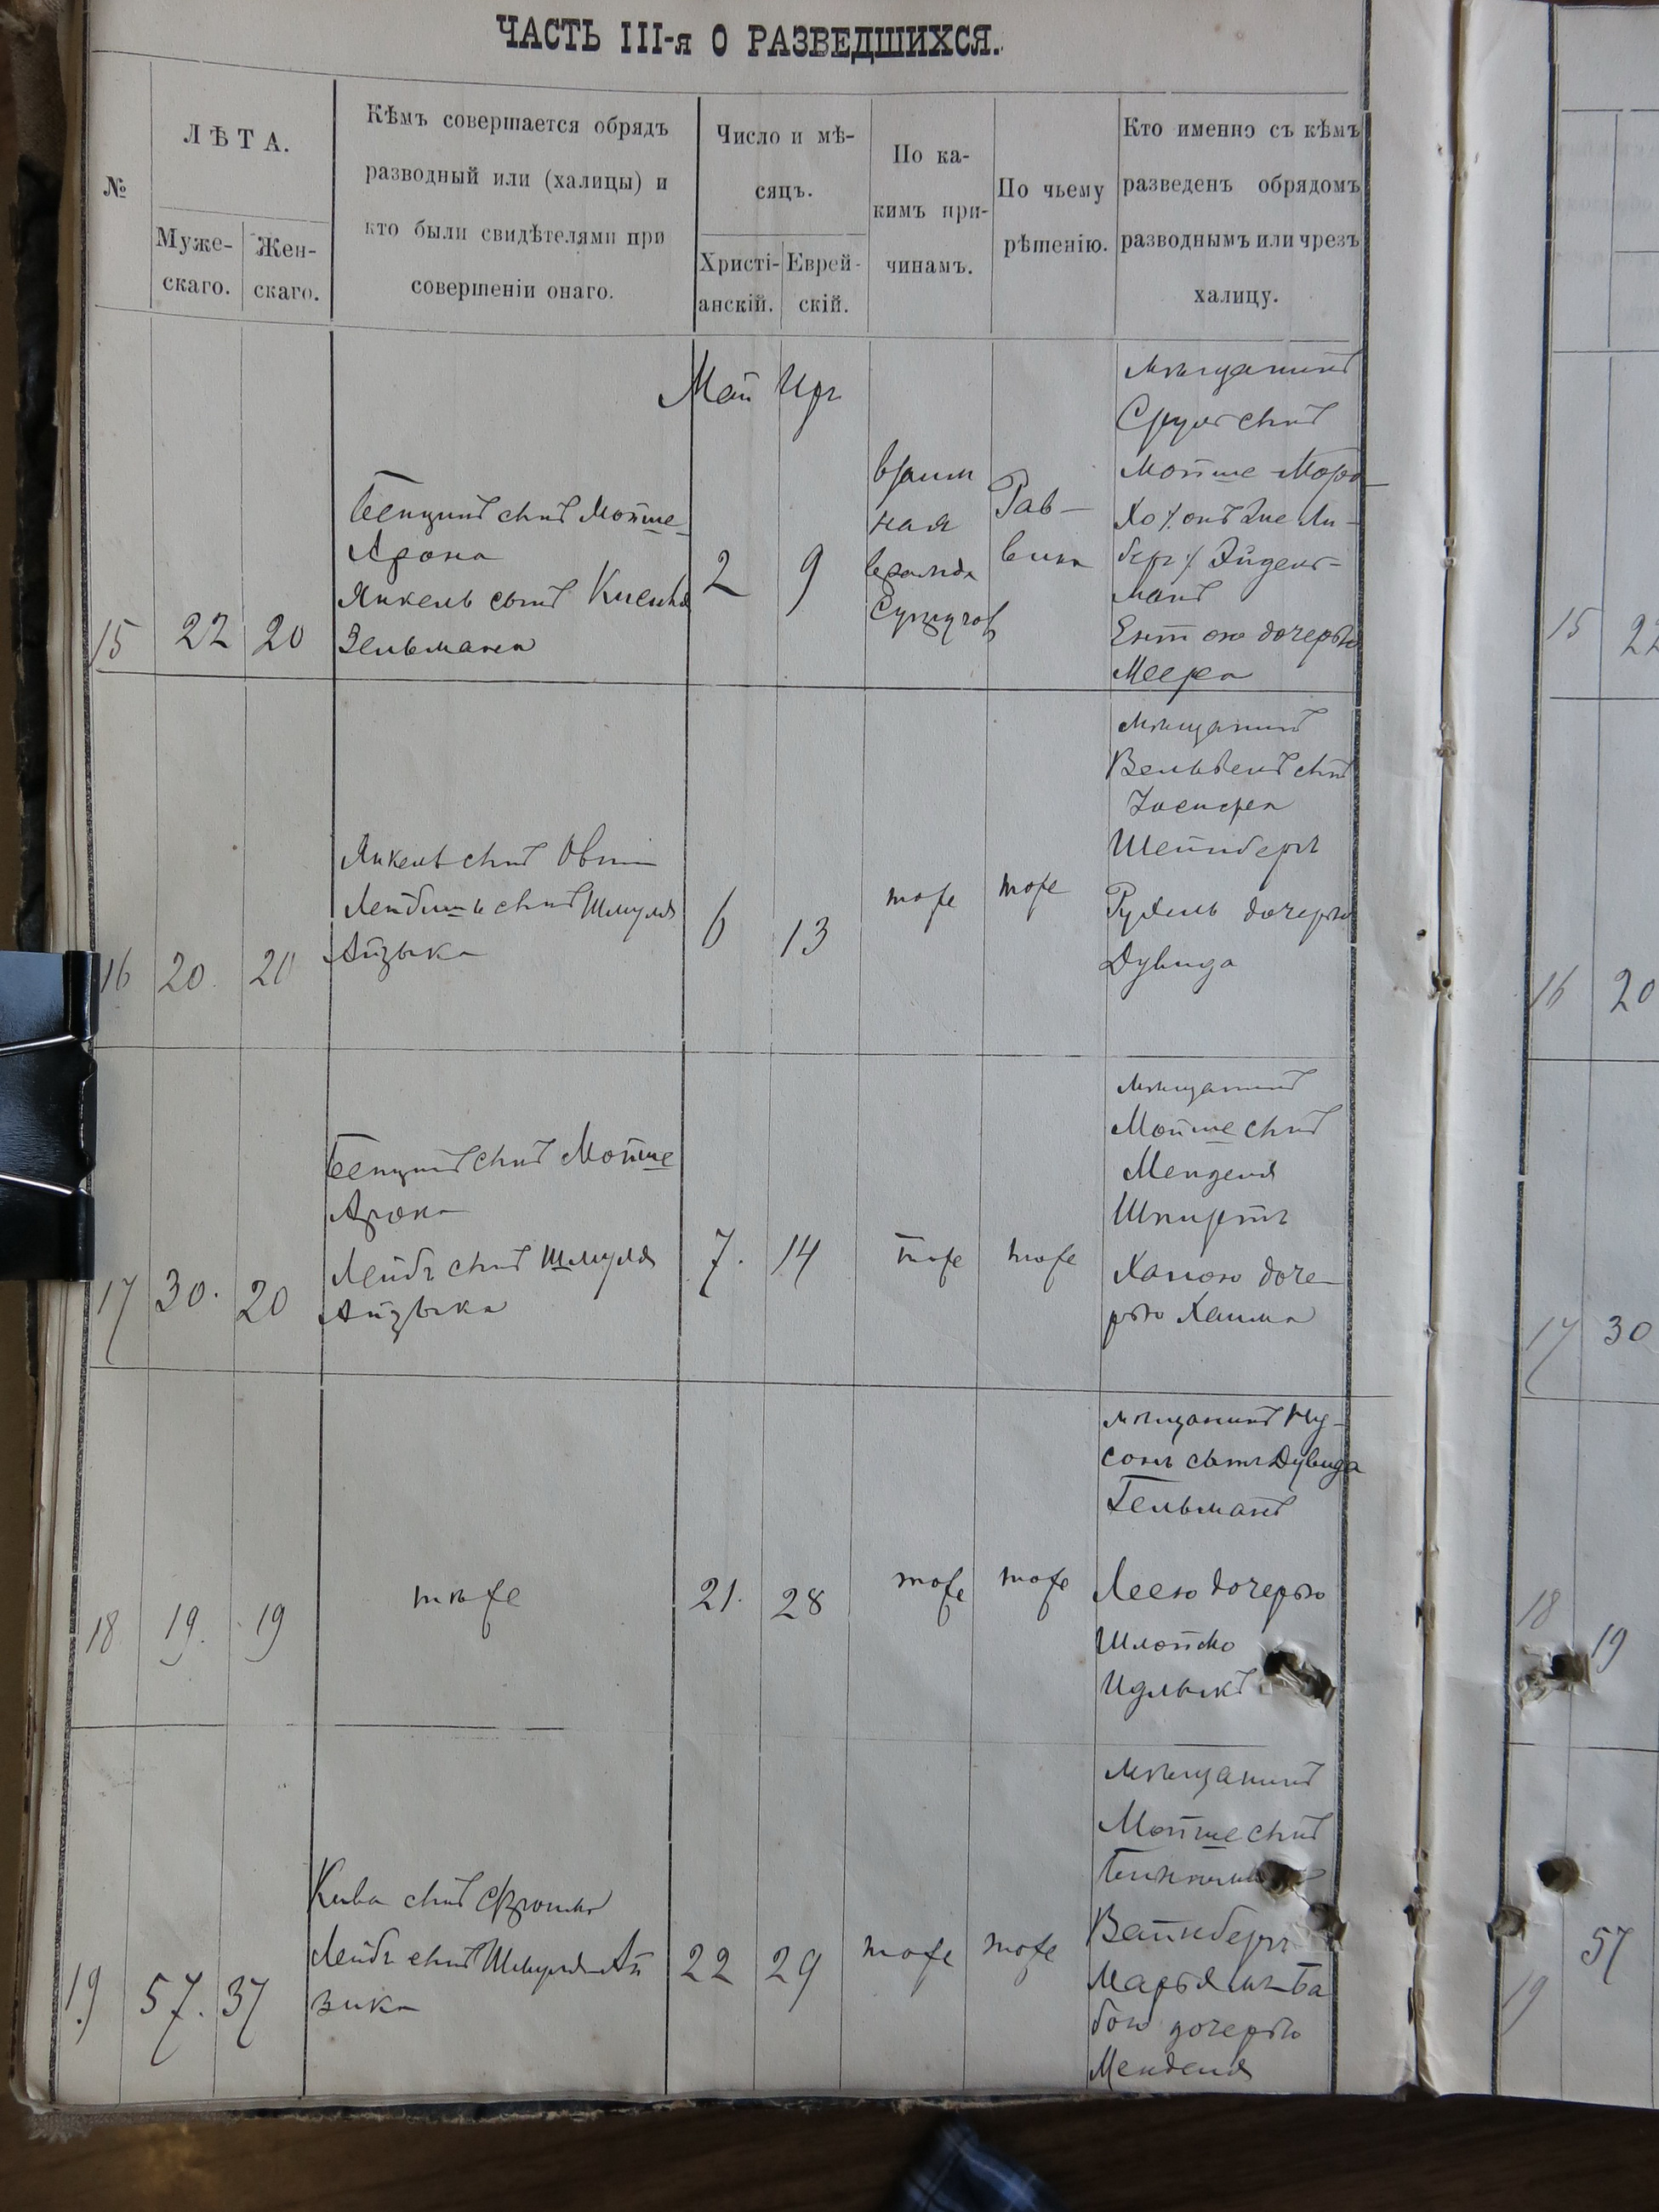 ЧАСТЬ III-я О РАЗВЕДШИХСЯ.
№
ЛѢТА.
Муже-
скаго.
Жен-
скаго.
Кѣмъ совершается обрядъ
разводный или (халицы) и
кто были свидѣтелями при
совершеніи онаго.
Число и мѣ-
сяцъ.
Христі-
анскій.
Еврей-
скій.
По ка-
кимъ при-
чинамъ.
По чьему
рѣшенію.
Кто именно съ кѣмъ
разведенъ обрядомъ
разводнымъ или чрезъ
халицу.
Май Иръ
15
22
20
Бенціинъ сынъ Мойше
Арона
Янкель сынъ
Зельмана
2
9
взаим
ная
вражда
Супругов
Рав-
вина
мѣщанинъ
Сруль сынъ
Мойше
Эйдель-
манъ
Ентою дочерью
Меера
16
20.
20
Янкель сынъ
Лейбишь сынъ Шмуля
Айзыка
6
13
тоже
тоже
мѣщанинъ
Вельвель сынъ
Іосифа
Шейнберъ
Рухель дочерью
Дувида
17
30.
20
Бенціинъ сынъ Мойше
Арона
Лейбъ сынъ Шмуля
Айзыка
7.
14
тоже
тоже
мѣщанинъ
Мойше сынъ
Менделя
Ханою доче-
рью Хаима
18
19.
19
тоже
21.
28
тоже
тоже
мѣщанинъ Ну-
сонъ сынъ Дувида
Гельманъ
Леею дочерью
Шлоймо
19
57.
37
Кива сынъ Фроима
Лейбъ сынъ Шмуля Ай
зика
22
29
тоже
тоже
мѣщанинъ
Мойше сынъ
Вайнберъ
Марьямъ-Ба
бою дочерью
Менделя
15
22
16
20
17
30
18
19
19
57